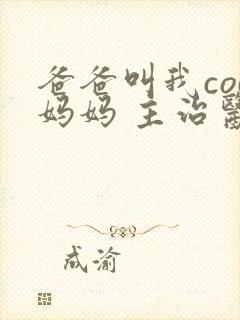 爸爸叫我co
妈妈 主治
成渝